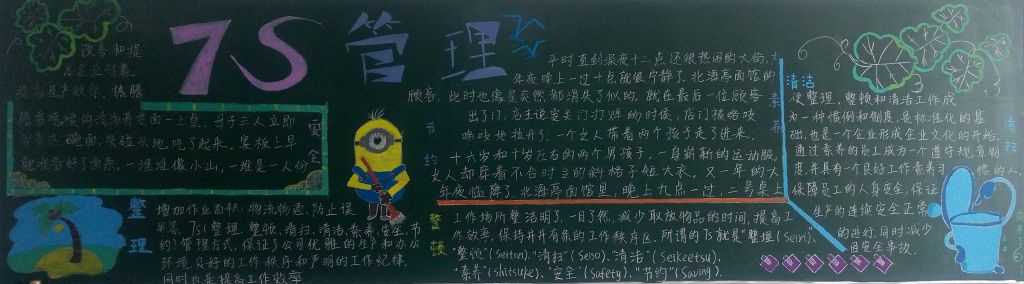 7S 管理
改善和提
高企业形象
提高生产效率，
安全
腾着喷喷的清汤荞麦面一上桌，母子三人立即
围着这一碗面，头碰头地吃了起来。
就准备好了面条，一堆堆像小山，一堆是一人份
整理
增加作业面积；物流畅通、防止误
用等。7S（整理、整顿、清扫、清洁、素养、安全、节
约）管理方式，保证了公司优雅的生产和办公
环境，良好的工作秩序和严明的工作纪律，
同时也是提高工作效率
节约
平时直到深夜十二点还很热闹的大街，
年夜晚上一过十点就很宁静了。北海亭面馆的
顾客，此时也像是突然都消失了似的。就在最后一位顾客
出了门，店主说要关门打烊的时候，店门被咯吱
咯吱地拉开了。一个女人带着两个孩子走了进来。
十六岁和十岁左右的两个男孩子，一身崭新的运动服，
女人却穿着不合时令的斜格子短大衣。又一年的大
年夜临降了。北海亭面馆里，晚上九点一过，二号桌上
素养
整顿
工作场所整洁明了，一目了然，减少取放物品的时间，提高工
作效率，保持井井有条的工作秩序区。所谓的7S就是"整理（Seiri）、
"整顿"（Seiton）、"清扫"（Seiso）、"清洁"（Seikeetsu）、
"素养"（shitsuke）、"安全"（Safety）、"节约"（Saving）.
清洁
使整理、整顿和清洁工作成
为一种惯例和制度，是标准化的基
础，也是一个企业形成企业文化的开始。
通过素养的员工成为一个遵守规章制
度，并具有一个良好工作素养习惯的人。
保障员工的人身安全，保证
生产的连续安全正常
的进行，同时减少
因安全事故
清扫